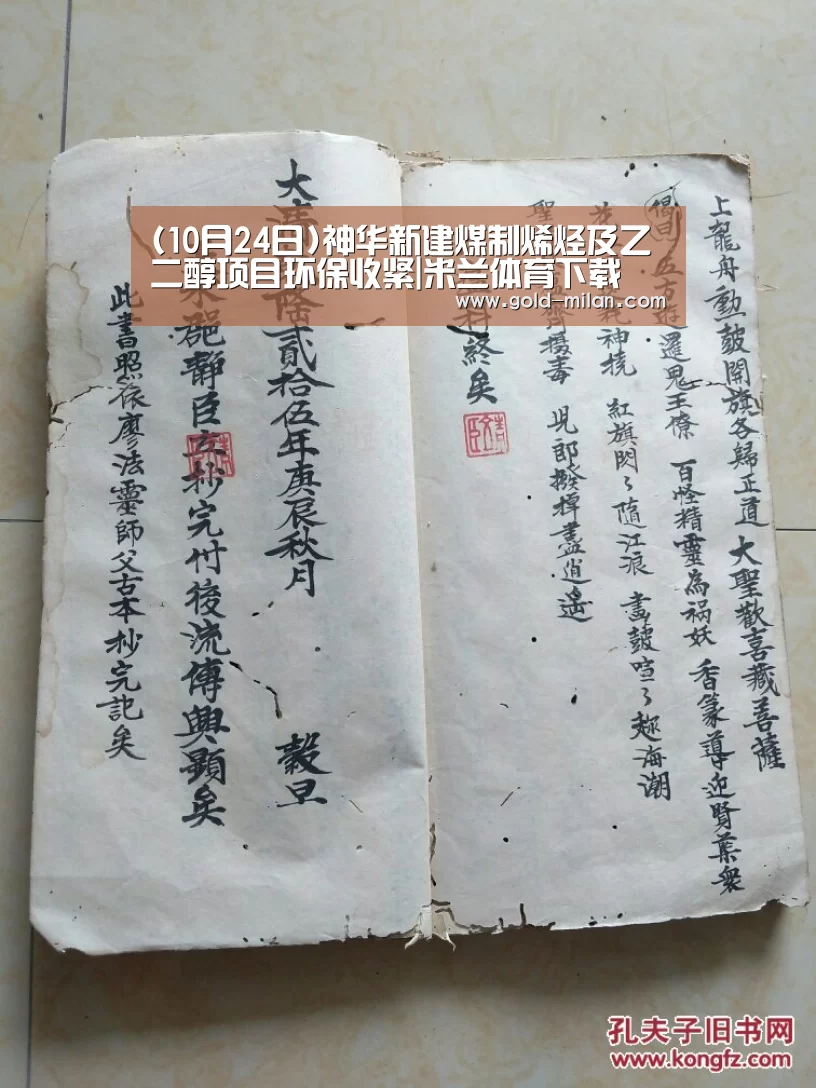 (10月24日)神华新建煤制烯烃及乙
二醇项目环保收紧|米兰体育下载
www.gold-milan.com
上龍舟動鼓開旗各歸正道 大聖歡喜藏菩薩
偈曰 五古遊邏鬼王僚 百怪精靈為禍妖 香篆導迎賢葉衆
神撓 紅旗閃々隨江浪 畫皷喧々趂海潮
聖 齊攝毒 児郎撥棹盡逍遥
科終矣
大 貳拾伍年庚辰秋月 穀旦
靜臣 抄完付後流傳興顯矣
此書照依廖法靈師父古本抄完記矣
孔夫子旧书网
www.kongfz.com